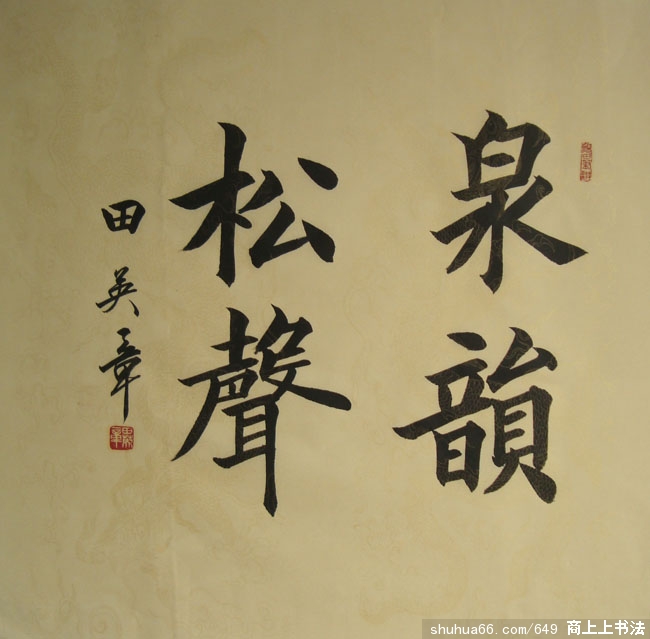 泉韻
松聲
田英章
shuhua66.com/649 商上上书法